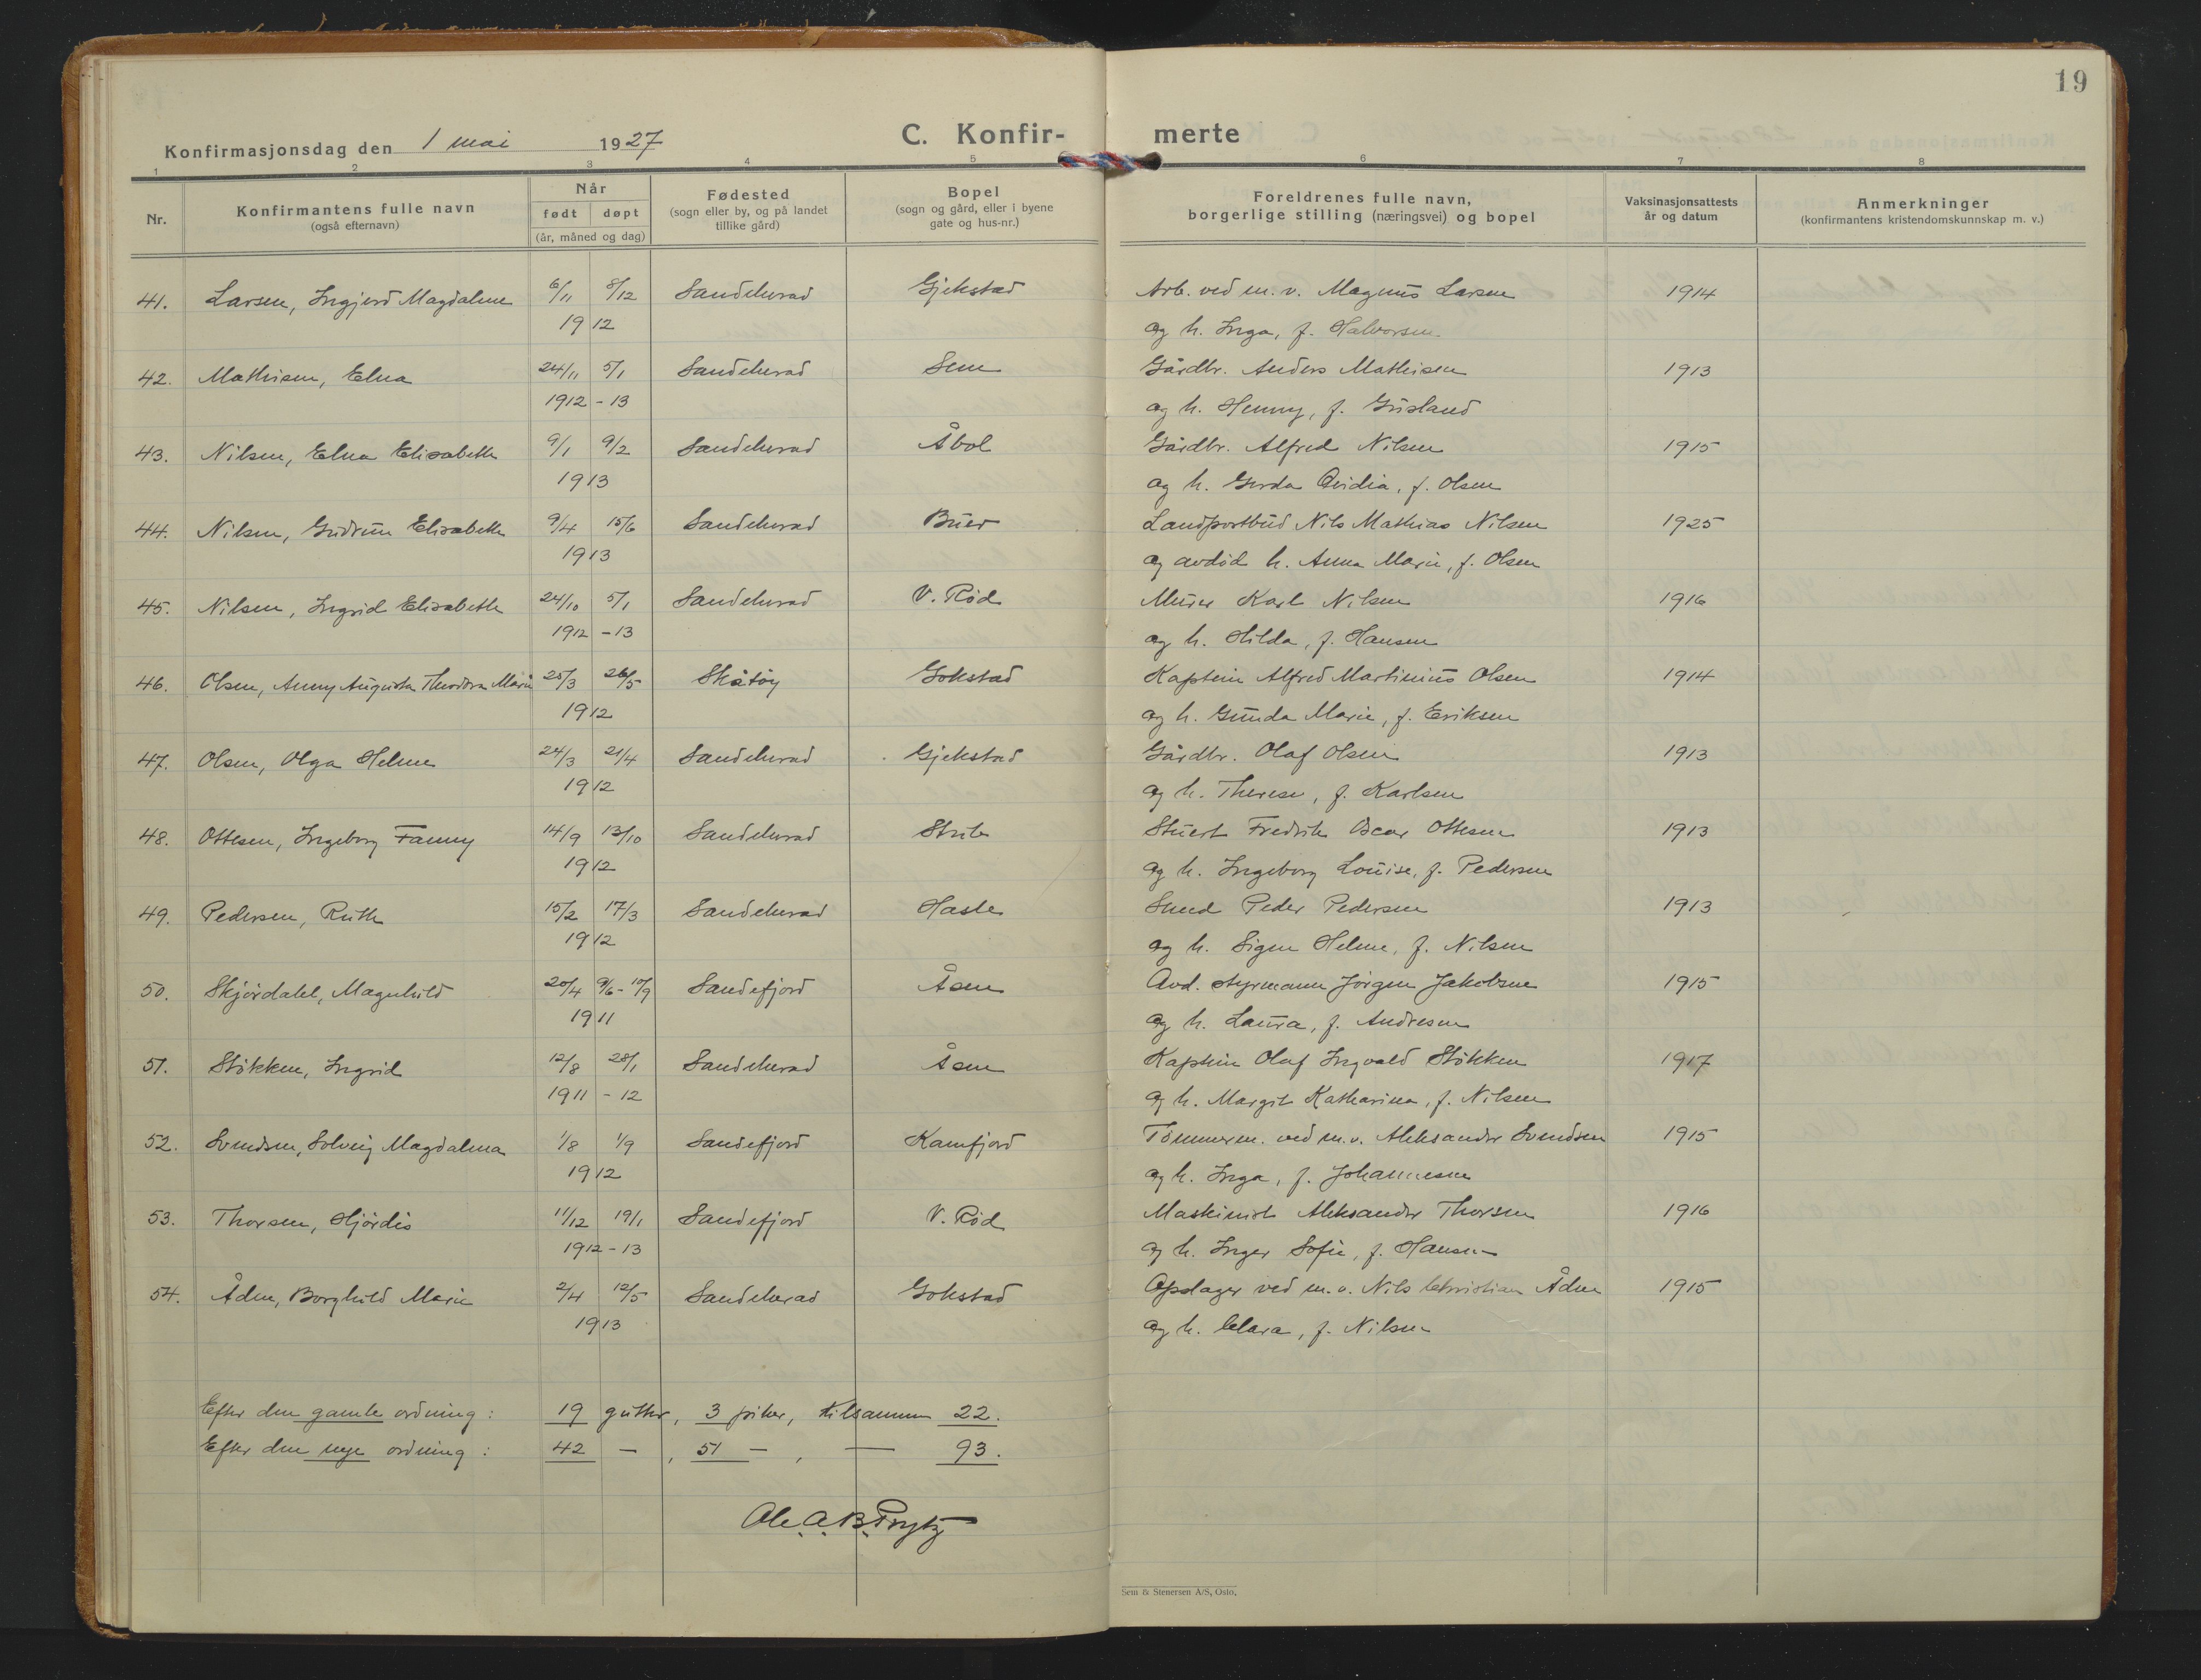 19
Konfirmasjonsdag den 1 mai 1927
C. Konfir-merte
1 2 3 4 5 6 7 8
Nr.
Konfirmantens fulle navn
(også efternavn)
Når
født døpt
(år, måned og dag)
Fødested
(sogn eller by, og på landet
tillike gård)
Bopel
(sogn og gård, eller i byene
gate og hus-nr.)
Foreldrenes fulle navn,
borgerlige stilling (næringsvei) og bopel
Vaksinasjonsattests
år og datum
Anmerkninger
(konfirmantens kristendomskunnskap m. v.)
41. Larsen, Ingjerd Magdalene 6/11 8/12 Sandeherad Gjekstad Arb. ved m. v. Magnus Larsen 1914
1912 og h. Inga, f. Halvorsen
42. Mathisen, Elna 24/11 5/1 Sandeherad Sem Gårdbr. Anders Mathisen 1913
1912 - 13 og h. Henny, f. Gusland
43. Nilsen, Elna Elisabeth 9/1 9/2 Sandeherad Åbol Gårdbr. Alfred Nilsen 1915
1913 og h. Gerda Ovidia, f. Olsen
44. Nilsen, Gudrun Elisabeth 9/4 15/6 Sandeherad Buer Landpostbud Nils Mathias Nilsen 1925
1913 og avdød h. Anna Marie, f. Olsen
45. Nilsen, Ingrid Elisabeth 24/10 5/1 Sandeherad V. Röd Murer Karl Nilsen 1916
1912 - 13 og h. Hilda, f. Hansen
46. Olsen, Anny Augusta Theodora Marie 25/3 26/5 Skåtøy Gokstad Kaptein Alfred Martinius Olsen 1914
1912 og h. Gunda Marie, f. Eriksen
47. Olsen, Olga Helene 24/3 21/4 Sandeherad Gjekstad Gårdbr. Olaf Olsen 1913
1912 og h. Therese, f. Karlsen
48. Ottesen, Ingeborg Fanny 14/9 13/10 Sandeherad Stuert Fredrik Oscar Ottesen 1913
1912 og h. Ingeborg Louise, f. Pedersen
49. Pedersen, Ruth 15/2 17/3 Sandeherad Hasle Smed Peder Pedersen 1913
1912 og h. Signe Helene, f. Nilsen
50. Skjördahl, Magnhild 20/4 9/6 - 10/9 Sandefjord Åsen Avd. styrmann Jörgen Jakobsen 1915
1911 og h. Laura, f. Andresen
51. Stökken, Ingrid 12/8 28/1 Sandeherad Åsen Kaptein Olaf Ingvald Stökken 1917
1911 - 12 og h. Margit Katharina, f. Nilsen
52. Svendsen, Solveig Magdalena 1/8 1/9 Sandefjord Kamfjord Tömmerm. ved m. v. Aleksander Svendsen 1915
1912 og h. Inga, f. Johannesen
53. Thorsen, Hjördis 11/12 19/1 Sandefjord V. Röd Maskinist Aleksander Thorsen 1916
1912 - 13 og h. Inger Sofie, f. Hansen
54. Ådne, Borghild Marie 2/4 12/5 Sandeherad Gokstad Opslager ved m. v. Nils Christian Ådne 1915
1913 og h. Clara, f. Nilsen
Efter den gamle ordning: 19 gutter, 3 piker, tilsammen 22.
Efter den nye ordning: 42 — , 51 — , — 93.
Ole A. B. Prytz
Sem & Stenersen A/S, Oslo.